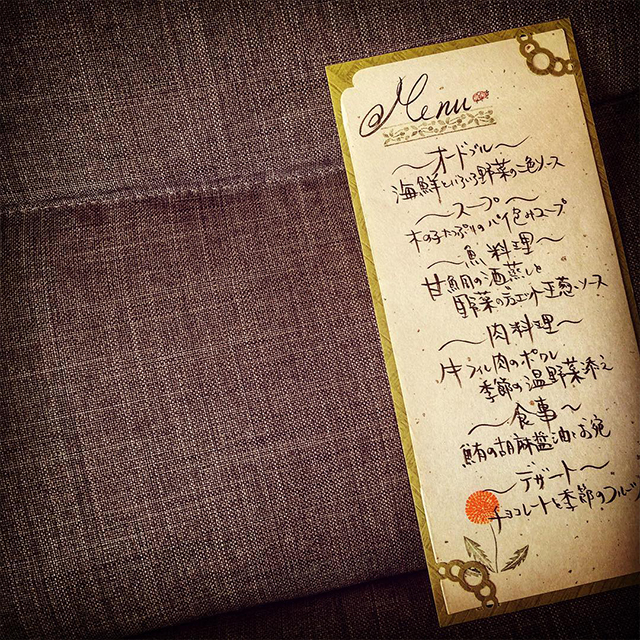 Menu
～オードブル～
海鮮といろいろ野菜の二色ソース
～スープ～
木の子たっぷりのパイ包みスープ
～魚料理～
甘鯛の酒蒸しと
野菜のデュエット 玉葱ソース
～肉料理～
牛フィレ肉のポワレ
季節の温野菜添え
～食事～
鮪の胡麻醤油
～デザート～
チョコレートと季節のフルーツ